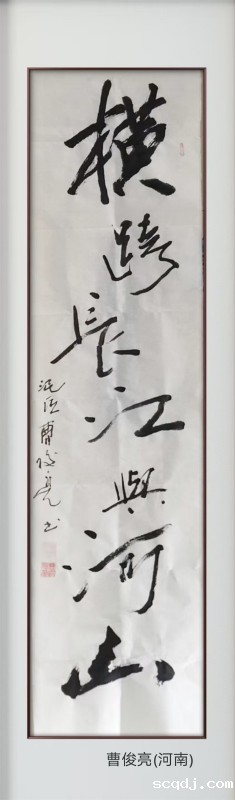 横跨長江與河山
曹俊亮书
曹俊亮(河南)
www.scqdj.com